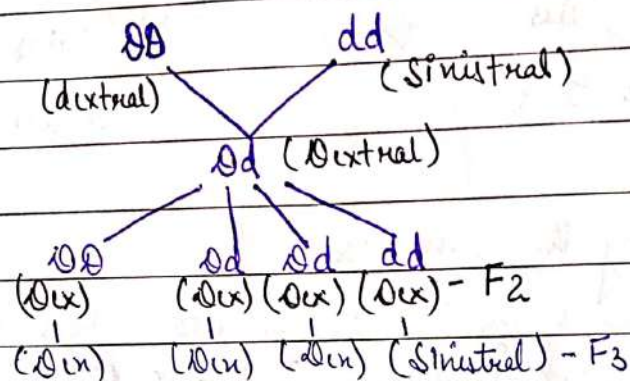 DD dd
(dextral) (Sinistral)
Dd (Dextral)
DD Dd Dd dd
(Dex) (Dex) (Dex) (Dex) - F2
(Dex) (Dex) (Dex) (Sinistral) - F3